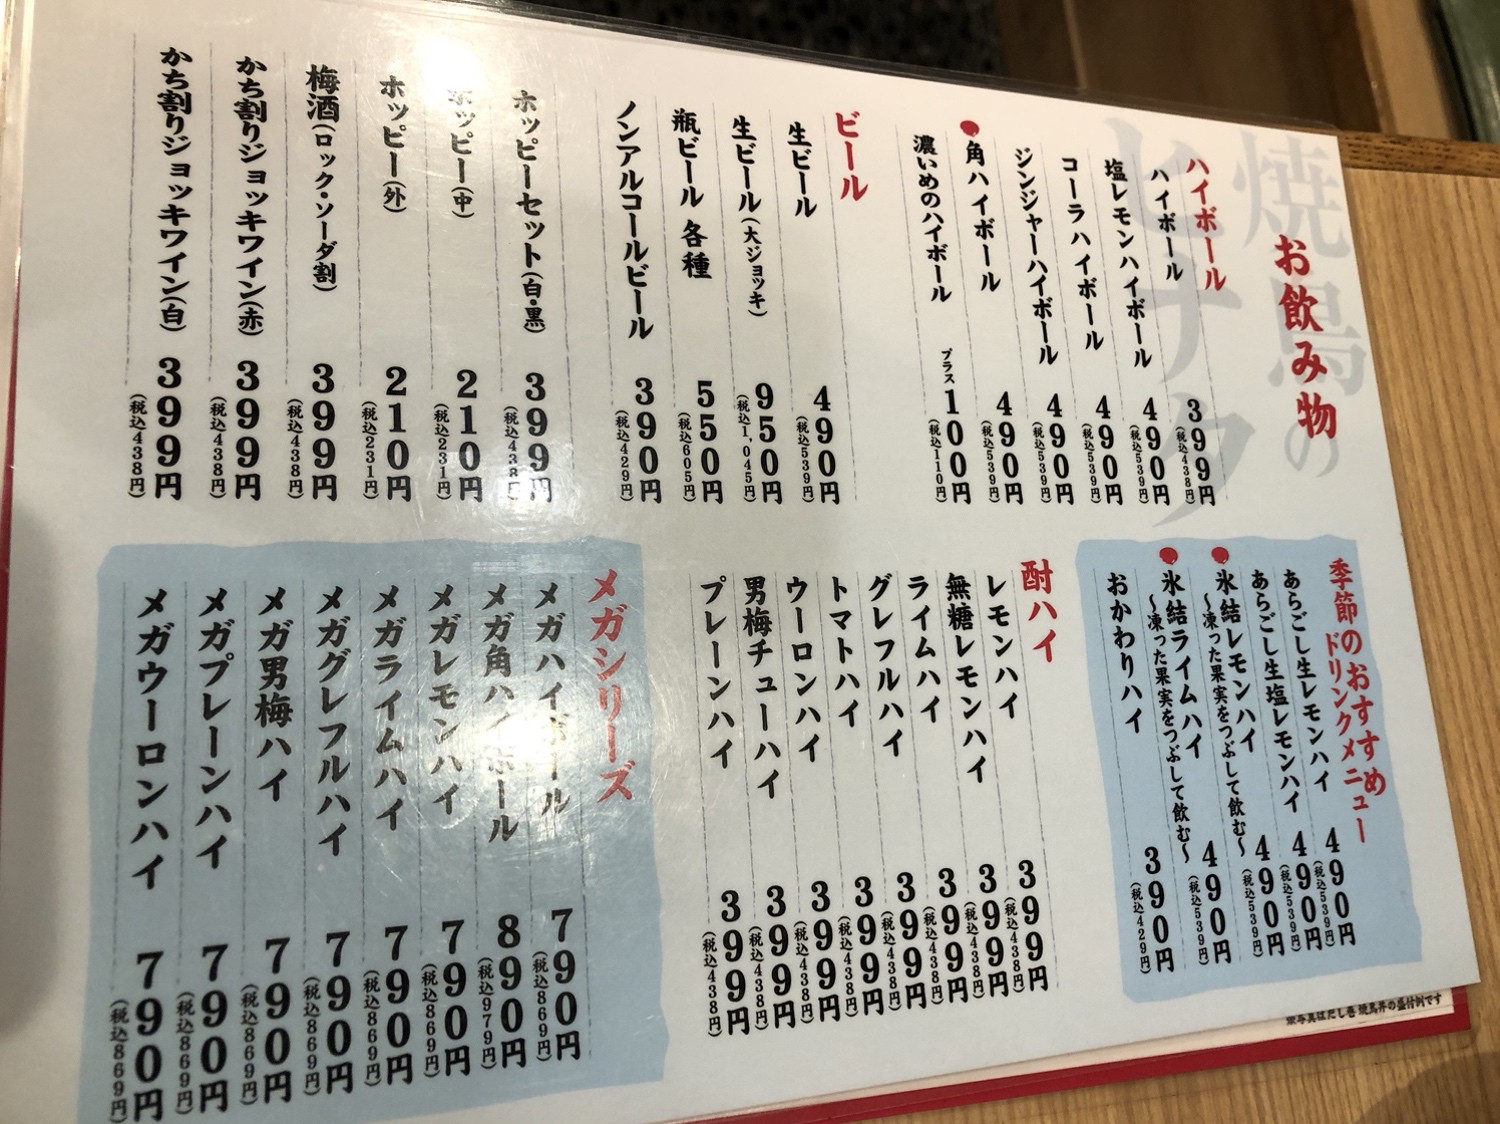 焼鳥の
ヒナタ
お飲み物
ハイボール
ハイボール 399円(税込438円)
塩レモンハイボール 490円(税込539円)
コーラハイボール 490円(税込539円)
ジンジャーハイボール 490円(税込539円)
角ハイボール 490円(税込539円)
濃いめのハイボール プラス100円(税込110円)
ビール
生ビール 490円(税込539円)
生ビール(大ジョッキ) 950円(税込1,045円)
瓶ビール 各種 550円(税込605円)
ノンアルコールビール 390円(税込429円)
ホッピーセット(白・黒) 399円(税込438円)
ホッピー(中) 210円(税込231円)
ホッピー(外) 210円(税込231円)
梅酒(ロック・ソーダ割) 399円(税込438円)
かち割りジョッキワイン(赤) 399円(税込438円)
かち割りジョッキワイン(白) 399円(税込438円)
季節のおすすめ
ドリンクメニュー
あらごし生レモンハイ 490円(税込539円)
あらごし生塩レモンハイ 490円(税込539円)
氷結レモンハイ 490円(税込539円)
〜凍った果実をつぶして飲む〜
氷結ライムハイ 490円(税込539円)
〜凍った果実をつぶして飲む〜
おかわりハイ 390円(税込429円)
酎ハイ
レモンハイ 399円(税込438円)
無糖レモンハイ 399円(税込438円)
ライムハイ 399円(税込438円)
グレフルハイ 399円(税込438円)
トマトハイ 399円(税込438円)
ウーロンハイ 399円(税込438円)
男梅チューハイ 399円(税込438円)
プレーンハイ 399円(税込438円)
メガシリーズ
メガハイボール 790円(税込869円)
メガ角ハイボール 890円(税込979円)
メガレモンハイ 790円(税込869円)
メガライムハイ 790円(税込869円)
メガグレフルハイ 790円(税込869円)
メガ男梅ハイ 790円(税込869円)
メガプレーンハイ 790円(税込869円)
メガウーロンハイ 790円(税込869円)
※写真はだし巻 焼鳥丼の盛付例です